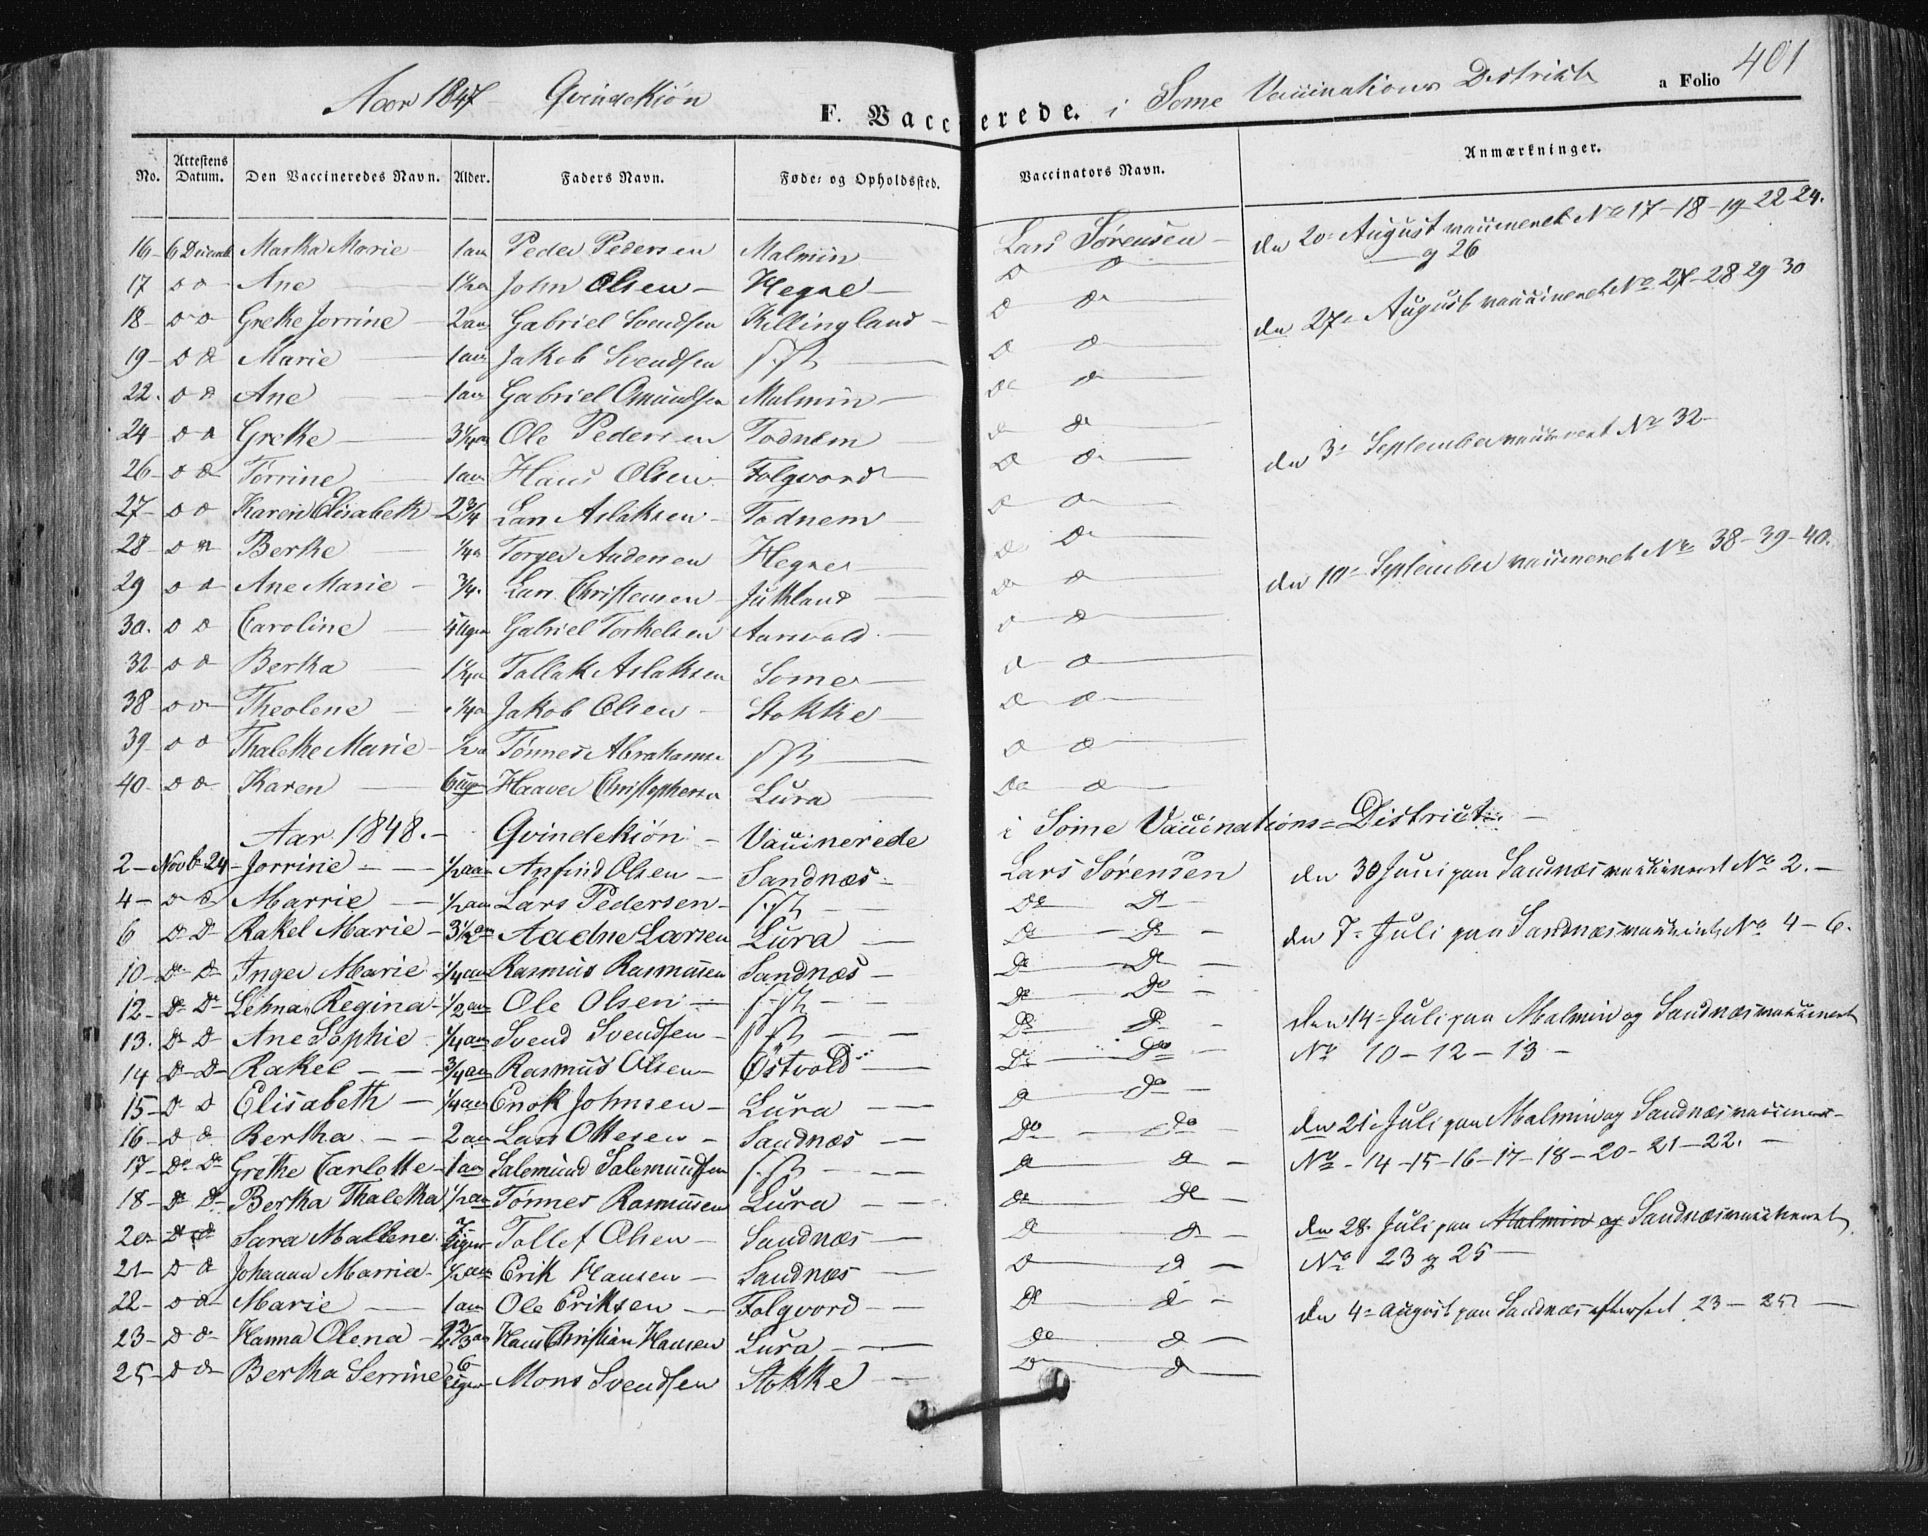 Aar 1847 Qvindekiön F. Vaccinerede. i Some Vaccinations District a Folio 401
No. Attestens Datum. Den Vaccineredes Navn. Alder. Faders Navn. Føde- og Opholdssted. Vaccinators Navn. Anmærkninger.
16 6 Decemb Martha Marie 1 aar Peder Pedersen Malmin Lars Sørensen den 20 August vaccineret No 17-18-19 22 24.
og 26
17 D D Ane John Olsen Hegre D D
18 D D Grethe Jorrine 2 aar Gabriel Svendsen Killingland D D den 27 August vaccineret No 27-28 29 30
19 D D Marie 1 aar Jakob Svendsen D D
22. D D Ane 1 aar Gabriel Omundsen Malmin D D
24 D D Grethe 3 1/4 Ole Pedersen Todnem D D
26 D D Torrine 1 aar Hans Olsen Folgvord D D den 3 September vaccineret No 32
27 D D Karen Elisabeth 2 3/4 Lars Aslaksen Todnem D D
28 D D Berthe 1/4 Torger Aadnesen Hegre D D
29 D D Ane Marie 3/4 Lars Christensen Jutland D D den 10 September vaccineret No 38-39-40.
30. D D Caroline Gabriel Torkelsen D D
32 D D Bertha Tollak Aslaksen Some D D
38 D D Theolene 1/4 Jakob Olsen Stokke D D
39 D D Thalethe Marie 1/2 Tönnes Abrahams D D
40 D D Karen 6 uger Haaver Christophersen Lura D D
Aar 1848. Qvindekiön Vaccinerede i Some Vaccinations-District
2 Novb 24 Jorrine 1/2 aar Anfind Olsen Sandnæs Lars Sørensen den 30 Juni paa Sandnæs vaccineret No 2.
4 D D Marrie 1/2 aar Lars Pedersen D D
6 D D Rakel Marie 3 1/2 aar Aadne Larsen Lura D D den 7 Juli paa Sandnæs No 4-6.
10 D D Inger Marie 1/4 aar Rasmus Rasmussen Sandnæs D D
12 D D Regina 1/2 aar Ole Olsen D D
13. D D Ane Sophie 1/4 aar Svend Svendsen D D den 14 Juli paa Malmin og Sandnæs vaccineret
No 10-12-13
14 D D Rakel 3/4 aar Rasmus Olsen Östvold D D
15 D D Elisabeth 1/4 aar Enok Johnsen Lura D D
16 D D Bertha 2 aar Lars Ottesen Sandnæs D D den 21 Juli paa Malmin og Sandnæs
17 D D Grethe Carlotte 1 aar Salemund Salemundsen D D No 14-15-16-17-18-20-21-22.
18 D D Bertha Thaletha 1/2 aar Tönnes Rasmussen Lura D D
20 D D Sara Mallene 7 uger Tollef Olsen Sandnæs D D den 28 Juli paa Malmin og Sandnæs vaccineret
21 D D Johanna Marria 1/2 aar Erik Hansen Sandnæs D D No 23 og 25
22 D D Marie 1 aar Ole Eriksen Folgvord D D den 4 august paa Sandnæs efterseet 23-25
23 D D Hanna Olena 2 2/3 aar Hans Christian Hansen Lura D D
25 D D Bertha Serrine 6 uger Mons Svendsen Stokke D D